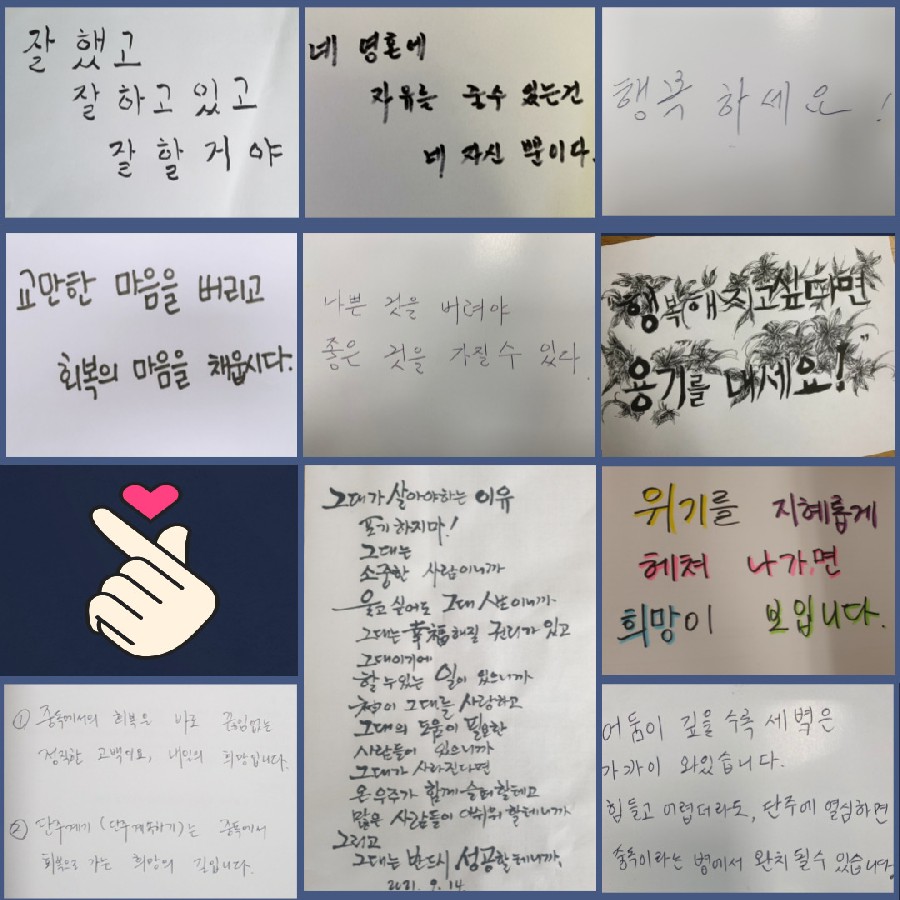 잘 했고
잘 하고 있고
잘 할 거야
네 영혼에
자유를 줄수 있는건
네 자신 뿐이다.
행복 하세요!
교만한 마음을 버리고
회복의 마음을 채웁시다.
나쁜 것을 버려야
좋은 것을 가질 수 있다.
"행복해지고싶다면
용기를 내세요!"
그대가 살아야하는 이유
포기하지마!
그대는
소중한 사람이니까
울고 싶어도 그대 人生이니까
그대는 幸福해질 권리가 있고
그대이기에
할 수 있는 일이 있으니까
神이 그대를 사랑하고
그대의 도움이 필요한
사람들이 있으니까
그대가 사라진다면
온 우주가 함께 슬퍼할테고
많은 사람들이 아쉬워 할테니까
그리고
그대는 반드시 성공할테니까.
2021. 9. 14.
위기를 지혜롭게
헤쳐 나가면
희망이 보입니다.
① 중독에서의 회복은 바로 끊임없는
정직한 고백이요, 내일의 희망입니다.
② 단주계기(단주계속하기)는 중독에서
회복으로 가는 희망의 길입니다.
어둠이 깊을 수록 새벽은
가까이 와있습니다.
힘들고 어렵더라도, 단주에 열심하면
중독이라는 병에서 완치 될수 있습니다